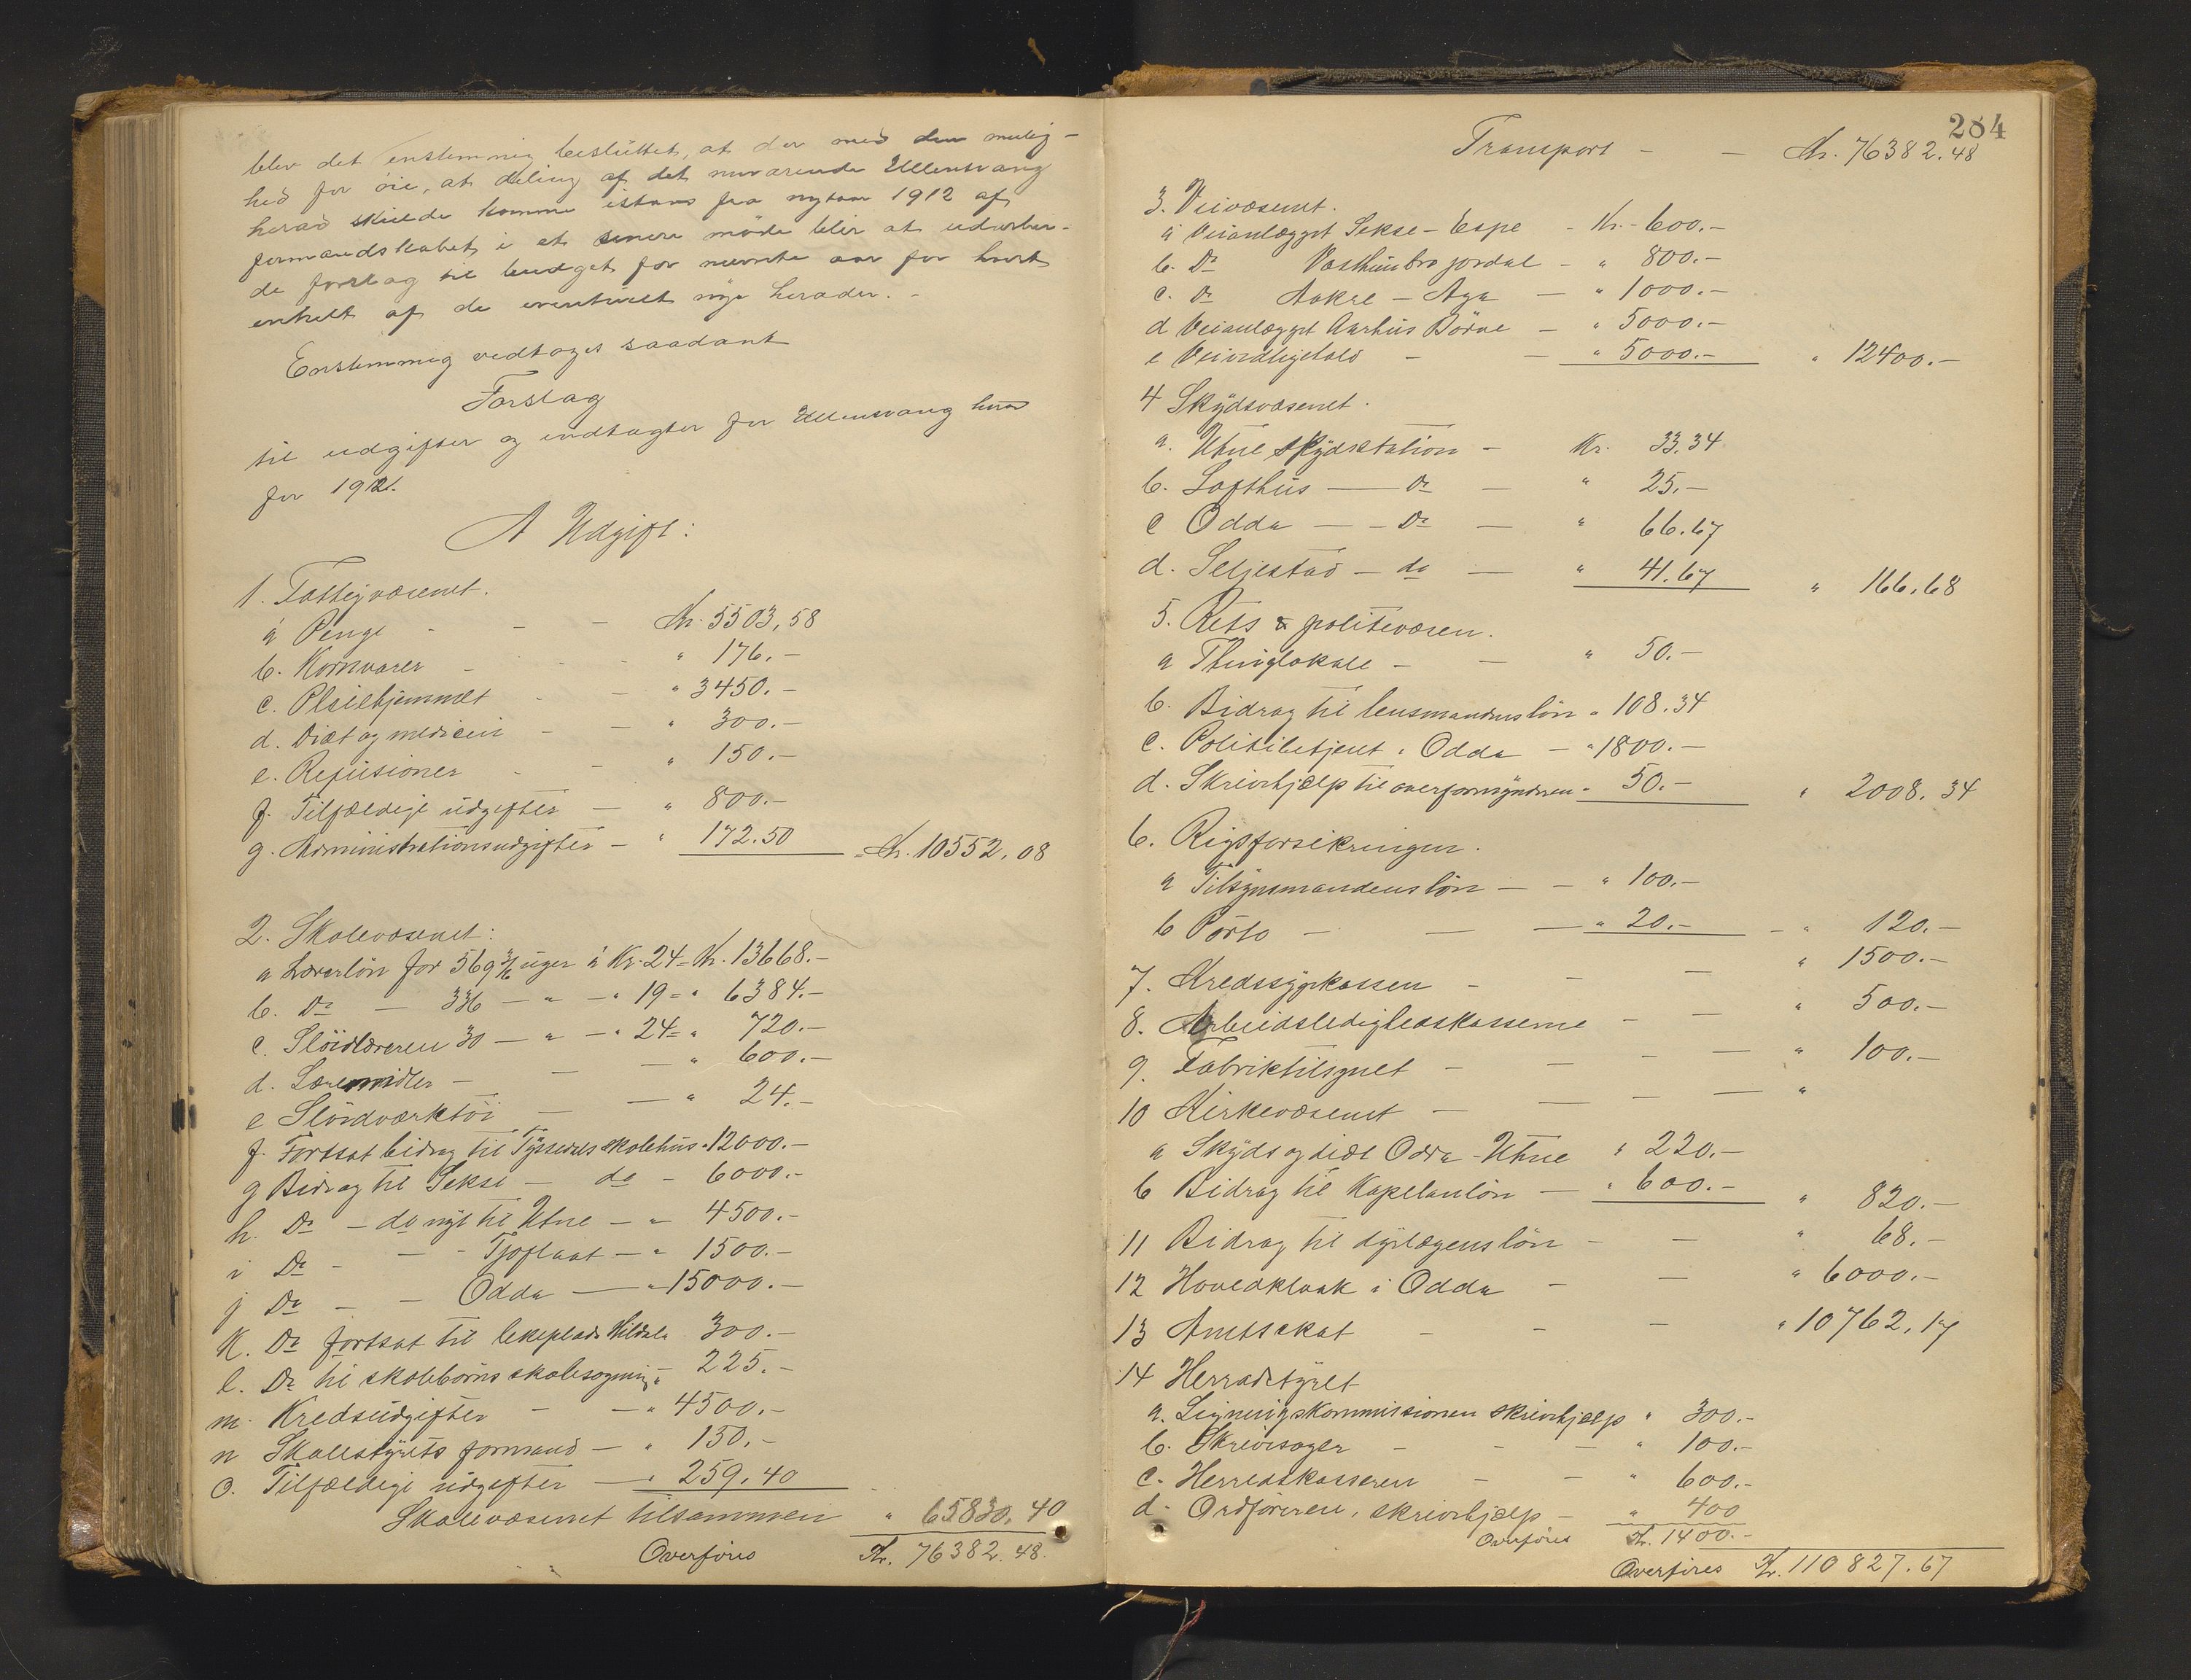 blev det enstemmig besluttet, at der med den mulig-
hed for øie, at deling af det nuværende Ullensvang
herad skulde komme istand fra nytaar 1912 af,
formandskabet i et senere møde blir at udarbei-
de forslag til budget for nævnte aar for hvert
enkelt af de eventuelt nye herader. -
Enstemmig vedtoges saadant
Forslag
til udgifter og indtægter for Ullensvang herad
for 1912.
A Udgift:
1. Fattigvæsenet.
a Penge - - - Kr. 5503,58
b. Kornvarer - - - " 176.-
c. Pleiehjemmet - - " 3450.-
d. Diæt og medicin - - " 300.-
e. Refusioner - - " 150.-
f. Tilfældige udgifter - " 800.-
g. Administrationsudgifter - " 172.50 Kr. 10552,08
2. Skolevæsenet:
a Lærerløn for 569 3/6 uger à Kr. 24 = Kr. 13668.-
b. Do - 336 - " - " 19 = " 6384.-
c. Sløidlæreren 30 - " - " 24 = " 720.-
d. Læremidler - - - " 600.-
e Sløidværktøi - - " 24.-
f. Fortsat bidrag til Tyssedal skolehus " 12000.-
g Bidrag til Sekse - do - 6000.-
h. Do - do nyt til Utne - " 4500.-
i Do - - - Tjoflaat - " 1500.-
j Do - - Odda - " 15000.-
k. Do fortsat til lekeplads Hildal " 300.-
l. Do til skolebørns skolesøgning " 225.-
m. Kredsudgifter - - " 4500.-
n Skolestyrets formand - " 150.-
o. Tilfældige udgifter - " 259.40
Skolevæsenet tilsammen " 65830.40
Overføres Kr. 76382.48.
284
Transport - - Kr. 76382.48
3. Veivæsenet.
a Veianlægget Sekse - Espe - Kr. - 600.-
b. Do Vasthun bro jordal - " 800.-
c. Do Aakre - Aga - " 1000.-
d Veianlægget Aarhus Børve - " 5000.-
e Veivedligehold - - " 5000.- " 12400.-
4 Skydsvæsenet.
a. Utne skydsstation - Kr. 33.34
b. Lofthus - Do - " 25.-
c Odda - - Do - " 66.67
d. Seljestad - do - " 41.67 " 166.68
5. Rets & politivæsen.
a Thinglokale - - " 50.-
b. Bidrag til lensmandens løn " 108.34
c. Politibetjent i Odda - " 1800.-
d. Skrivhjælp til overformynderen " 50.- " 2008.34
6. Rigsforsikringen.
a Tilsynsmandens løn - - " 100.-
b Porto - - - " 20.- - " 120.-
7. Kredssygekassen - - - " 1500.-
8. Arbeidsledighedskasserne - - " 500.-
9. Fabriktilsynet - - - - " 100.-
10 Kirkevæsenet - - - - "
a Skyds og diæt Odda - Utne " 220.-
b Bidrag til Kapelanløn - " 600.- " 820.-
11 Bidrag til dyrlægens løn - - " 68.-
12 Hovedkloak i Odda - - " 6000.-
13 Amtsskat - - - " 10762,17
14 Herradstyret
a. Ligningskommissionen skrivhjælp " 300.-
b. Skrivsager - - - " 100.-
c. Herredskasseren - - " 600.-
d. Ordføreren, skrivhjælp - " 400
Overføres Kr. 1400.-
Overføres Kr. 110827.67